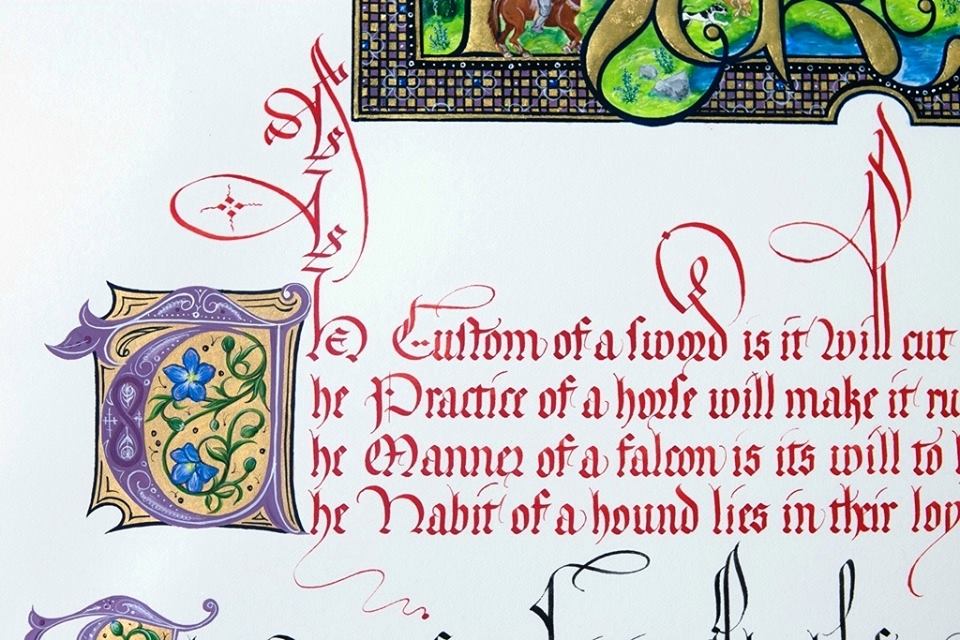 The Custom of a sword is it will cut
he Practice of a horse will make it ru
he Manner of a falcon is its will to
he Habit of a hound lies in their loy